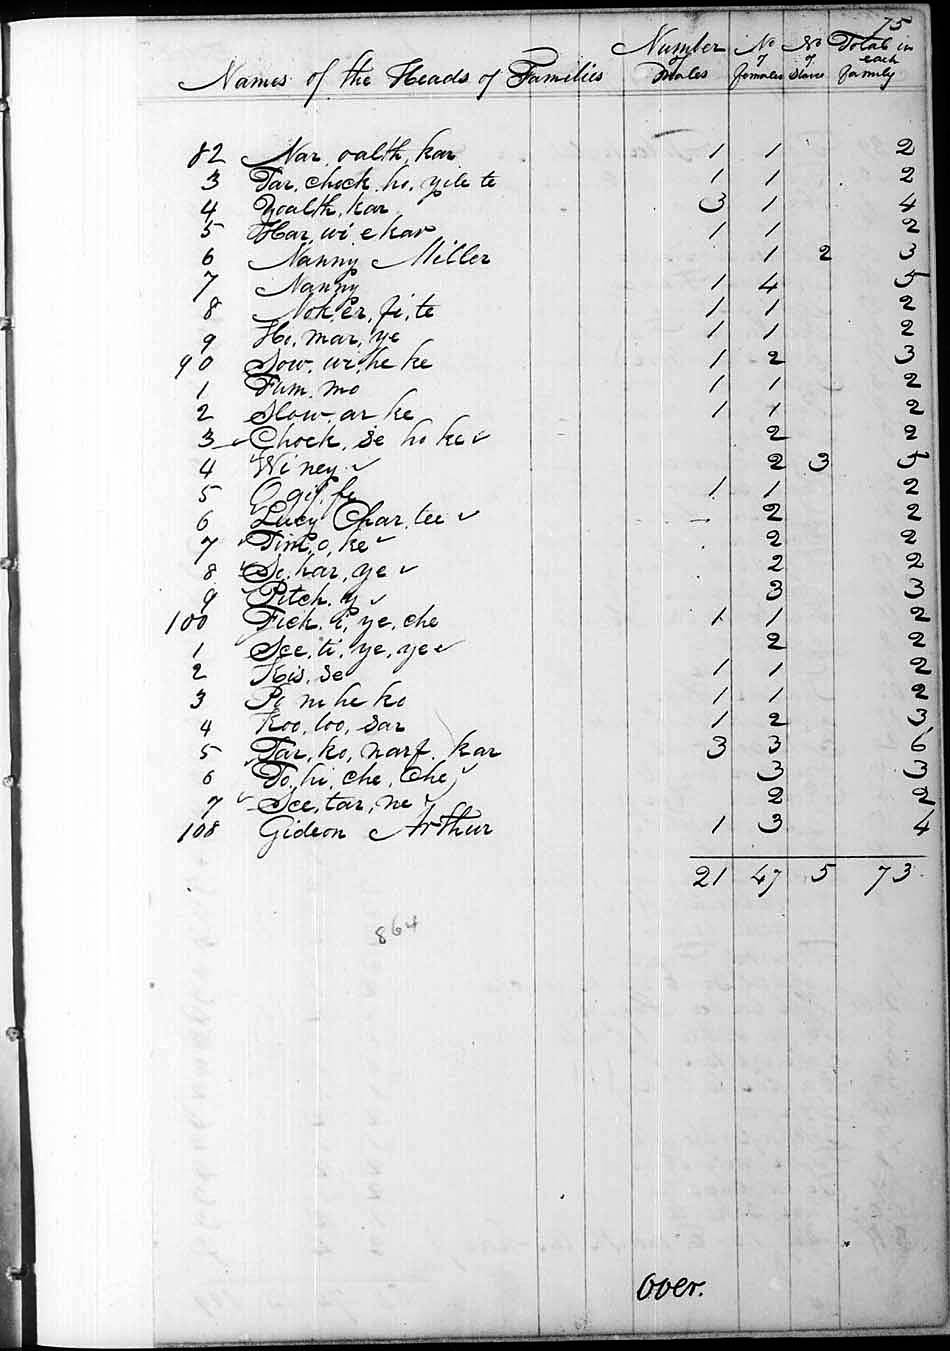 75
Names of the Heads of Families Number of Males No of females No of Slaves Total in each family
82 Nar, oalth, kar 1 1 2
3 Tar, chock, ho, yile te 1 1 2
4 Yoalth, kar 3 1 4
5 Har, wi e kar 1 1 2
6 Nanny Miller 1 2 3
7 Nanny 1 4 5
8 Nok, er, fi, te 1 1 2
9 Ho, mar, ye 1 1 2
90 Sow, wi, he ke 1 2 3
1 Fum, mo 1 1 2
2 Slow, ar ke 1 1 2
3 Chock, se ho ke 2 2
4 Winey 2 3 5
5 1 1 2
6 Lucy Char, tee 2 2
7 Tim, o, ke 2 2
8 Se, har, ye 2 2
9 Pitch, y 3 3
100 Fick, i, ye, che 1 1 2
1 See, ti, ye, ye 2 2
2 His, se 1 1 2
3 Po ne he ko 1 1 2
4 Koo, loo, sar 1 2 3
5 Tar, ko, narf, kar 3 3 6
6 To, hi, che, che 3 3
7 See, tar, ne 2 2
108 Gideon Arthur 1 3 4
21 47 5 73
864
Over.